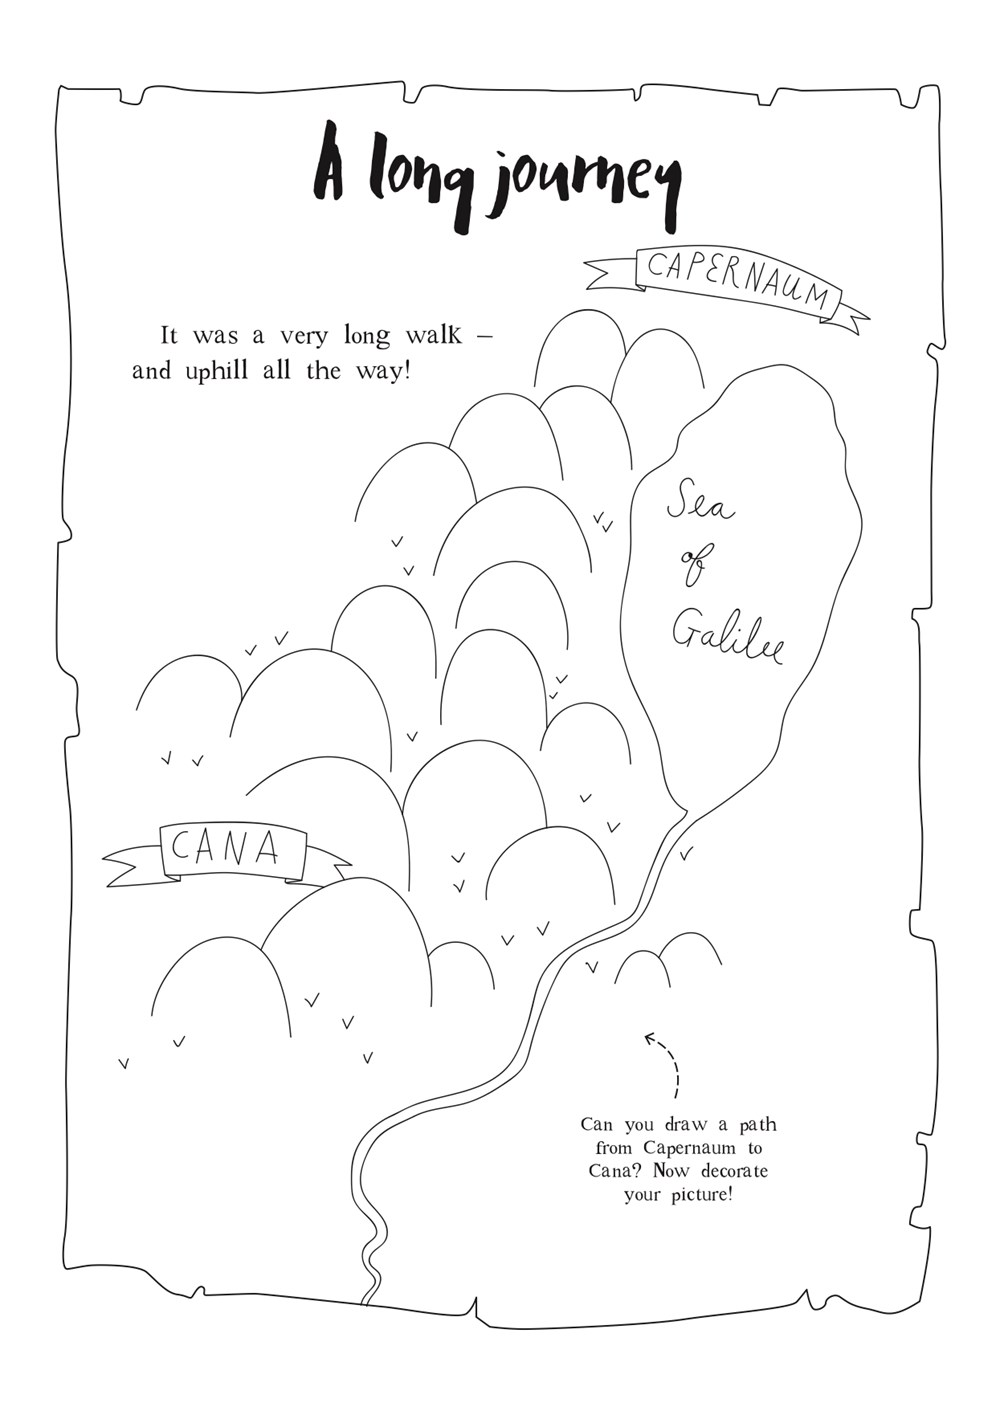 A long journey
CAPERNAUM
It was a very long walk –
and uphill all the way!
Sea
of
Galilee
CANA
Can you draw a path
from Capernaum to
Cana? Now decorate
your picture!